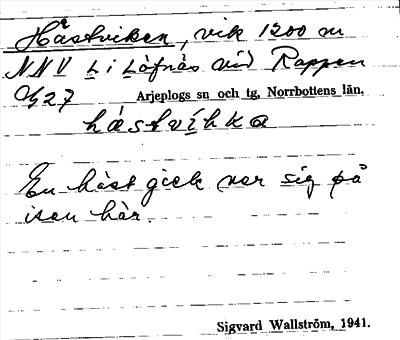 Hästviken, vik 1200 m
NNV Li Löfnäs vid Rappen
27 Arjeplogs sn och tg, Norrbottens län.
hástvíhka
En häst gick ner sig på
isen här.
Sigvard Wallström, 1941.